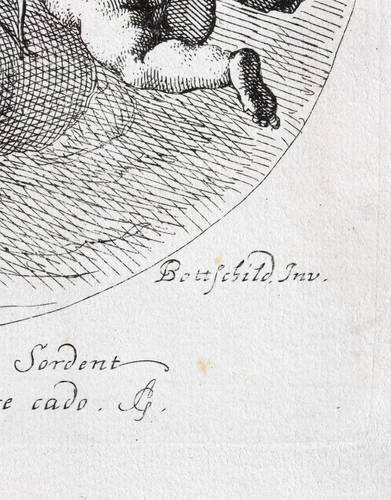 Bottschild. Inv.
Sordent
te cado. G.